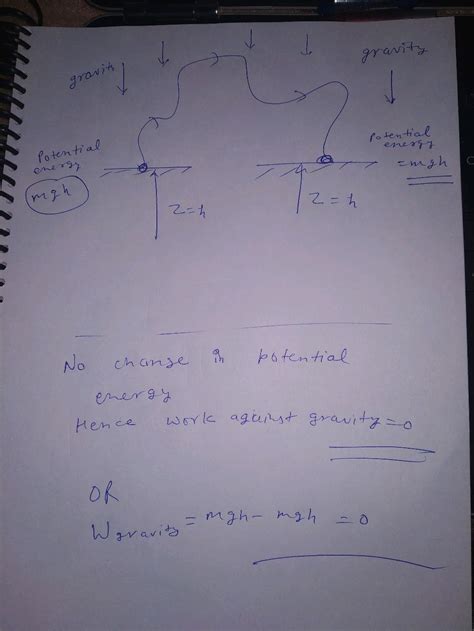 gravity
gravity
Potential
energy
mgh
Potential
energy
= mgh
Z=h
Z=h
No change in potential
energy
Hence work against gravity=0
OR
Wgravity = mgh - mgh = 0